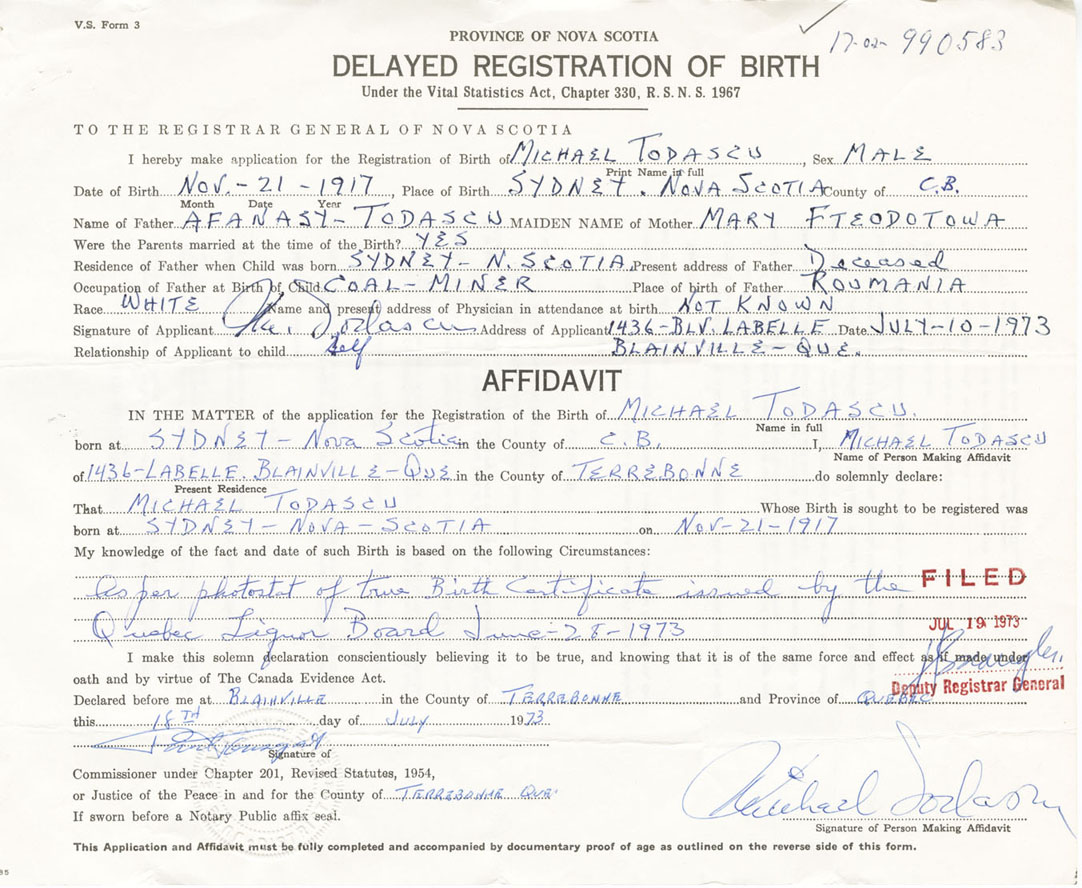 V.S. Form 3
17-02- 990583
PROVINCE OF NOVA SCOTIA
DELAYED REGISTRATION OF BIRTH
Under the Vital Statistics Act, Chapter 330, R.S.N.S. 1967
TO THE REGISTRAR GENERAL OF NOVA SCOTIA
I hereby make application for the Registration of Birth of MICHAEL TODASCU, Sex MALE
Print Name in full
Date of Birth NOV.-21-1917, Place of Birth SYDNEY. NOVA SCOTIA County of C.B.
Month Date Year
Name of Father AFANASY-TODASCU MAIDEN NAME of Mother MARY FTEODOTOWA
Were the Parents married at the time of the Birth? YES
Residence of Father when Child was born SYDNEY-N.SCOTIA. Present address of Father Deceased
Occupation of Father at Birth of Child COAL-MINER Place of birth of Father ROUMANIA
Race WHITE Name and present address of Physician in attendance at birth NOT KNOWN
Signature of Applicant Todascu Address of Applicant 1436-BLV. LABELLE Date JULY-10-1973
Relationship of Applicant to child Self BLAINVILLE-QUE.
AFFIDAVIT
IN THE MATTER of the application for the Registration of the Birth of MICHAEL TODASCU.
Name in full
born at SYDNEY-Nova Scotia in the County of C.B. I, MICHAEL TODASCU
Name of Person Making Affidavit
of 1436-LABELLE. BLAINVILLE-QUE in the County of TERREBONNE do solemnly declare:
Present Residence
That MICHAEL TODASCU Whose Birth is sought to be registered was
born at SYDNEY-NOVA-SCOTIA on NOV-21-1917
My knowledge of the fact and date of such Birth is based on the following Circumstances:
As per photostat of true Birth Certificate issued by the
FILED
Quebec Liquor Board June-28-1973
JUL 19 1973
I make this solemn declaration conscientiously believing it to be true, and knowing that it is of the same force and effect as if made under
oath and by virtue of The Canada Evidence Act.
Deputy Registrar General
Declared before me at BLAINVILLE in the County of TERREBONNE and Province of QUEBEC
this 18TH day of JULY 1973
Signature of
Commissioner under Chapter 201, Revised Statutes, 1954,
or Justice of the Peace in and for the County of TERREBONNE QUE.
If sworn before a Notary Public affix seal.
Michael Todascu
Signature of Person Making Affidavit
This Application and Affidavit must be fully completed and accompanied by documentary proof of age as outlined on the reverse side of this form.